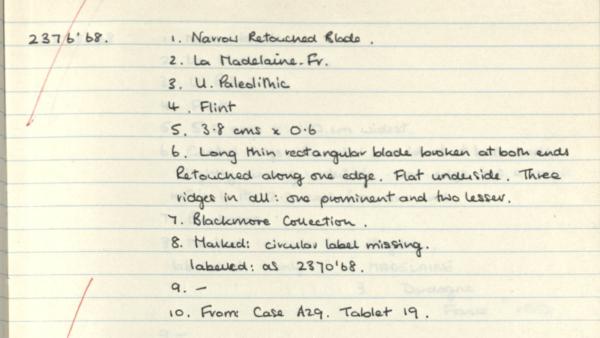 2376'68.
1. Narrow Retouched Blade.
2. La Madelaine. Fr.
3. U. Paleolithic
4. Flint
5. 3.8 cms x 0.6
6. Long thin rectangular blade broken at both ends
Retouched along one edge. Flat underside. Three
ridges in all: one prominent and two lesser.
7. Blackmore Collection.
8. Marked: circular label missing.
labelled: as 2370'68.
9. —
10. From: Case A29. Tablet 19.